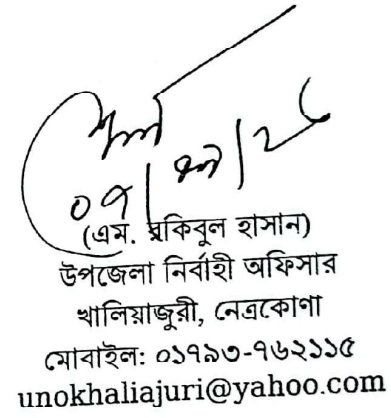 (এম. রকিবুল হাসান)
উপজেলা নির্বাহী অফিসার
খালিয়াজুরী, নেত্রকোণা
মোবাইল: ০১৭৯৩-৭৬২১১৫
unokhaliajuri@yahoo.com